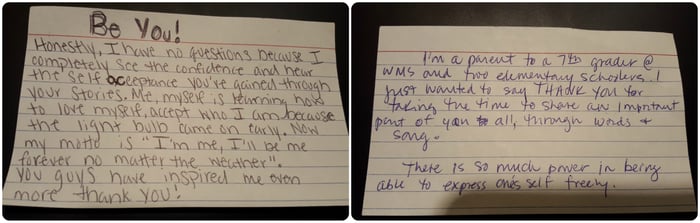 Be You!
Honestly, I have no questions because I
completely see the confidence and hear
the self acceptance you've gained through
your stories. Me, myself is learning how
to love myself, accept who I am because
the light bulb came on early. Now
my motto is "I'm me, I'll be me
forever no matter the weather".
You guys have inspired me even
more thank you!
I'm a parent to a 7th grader @
WMS and two elementary schoolers. I
just wanted to say THANK YOU for
taking the time to share an important
part of you to all, through words &
song.
There is so much power in being
able to express ones self freely.